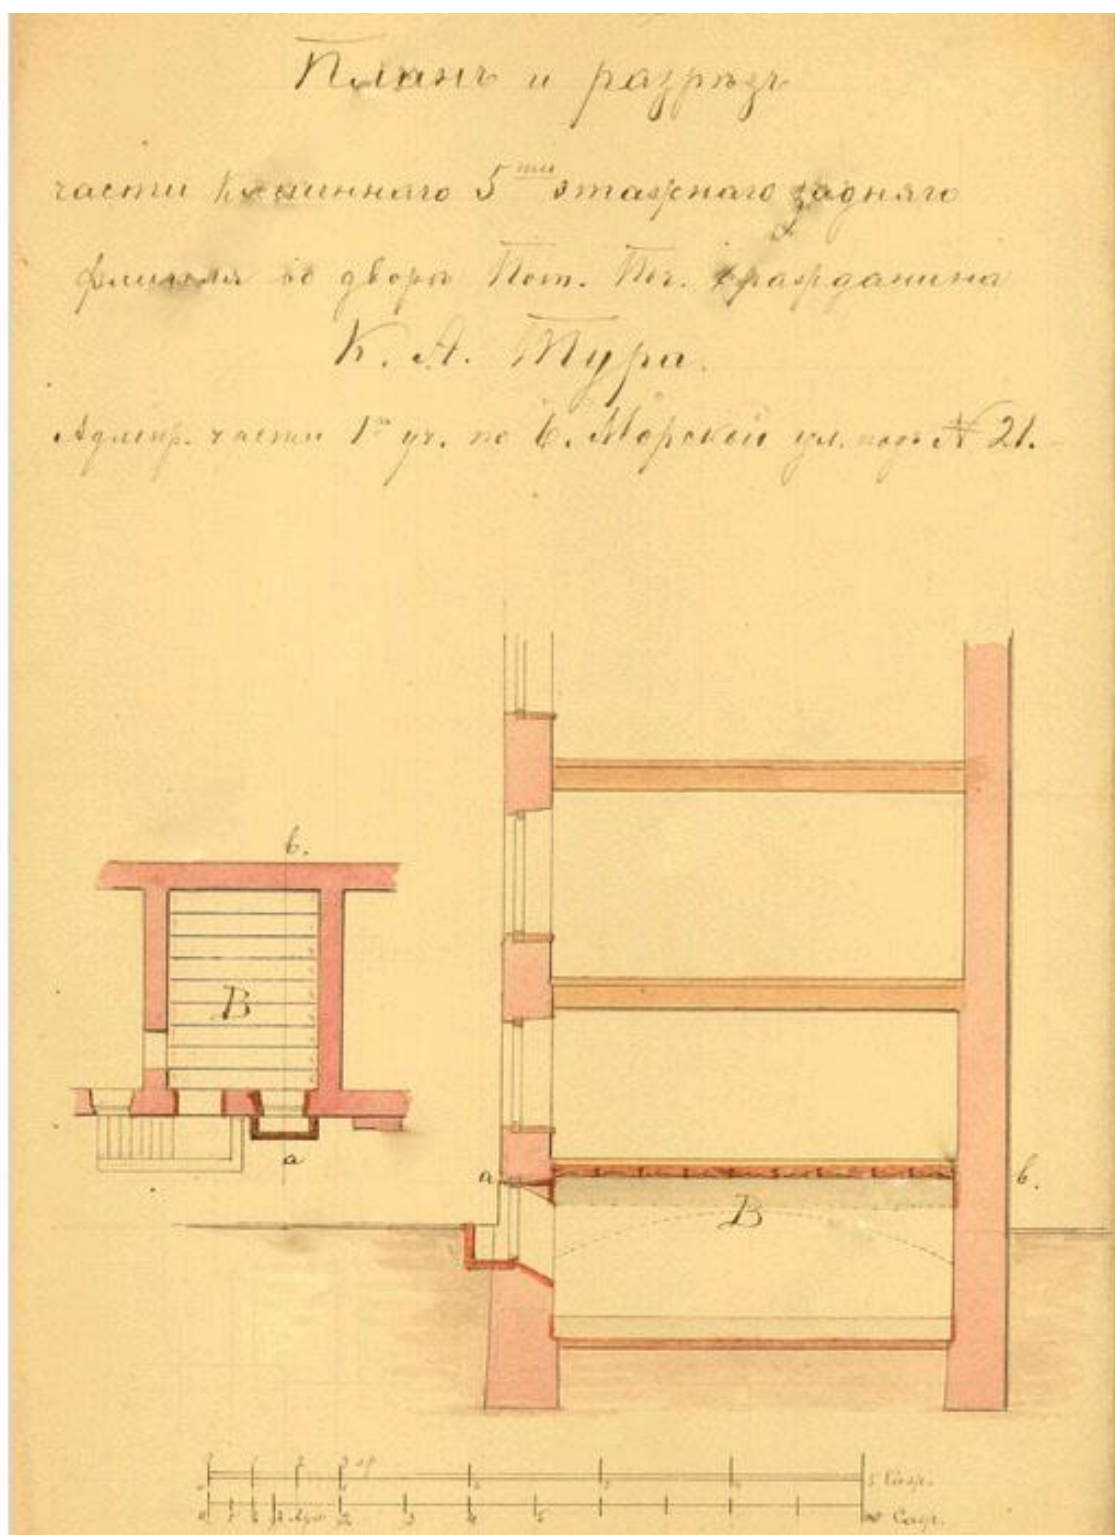 Планъ и разрѣзъ
части каменнаго 5ти этажнаго задняго
флигеля во дворѣ Пот. Поч. гражданина
К. А. Тура.
Адмир. части 1го уч. по Б. Морской ул. подъ № 21.
b.
B
a
a
B
b.
1 2 3 ар
5 Саж.
10 Саж.